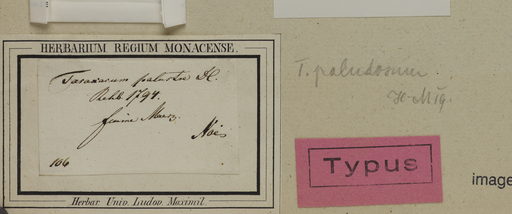 HERBARIUM REGIUM MONACENSE.
Taraxacum palustre
Rchb. 1797.
Noë
106
Herbar. Univ. Ludov. Maximil.
T. paludosum
H-Mzg.
Typus
image